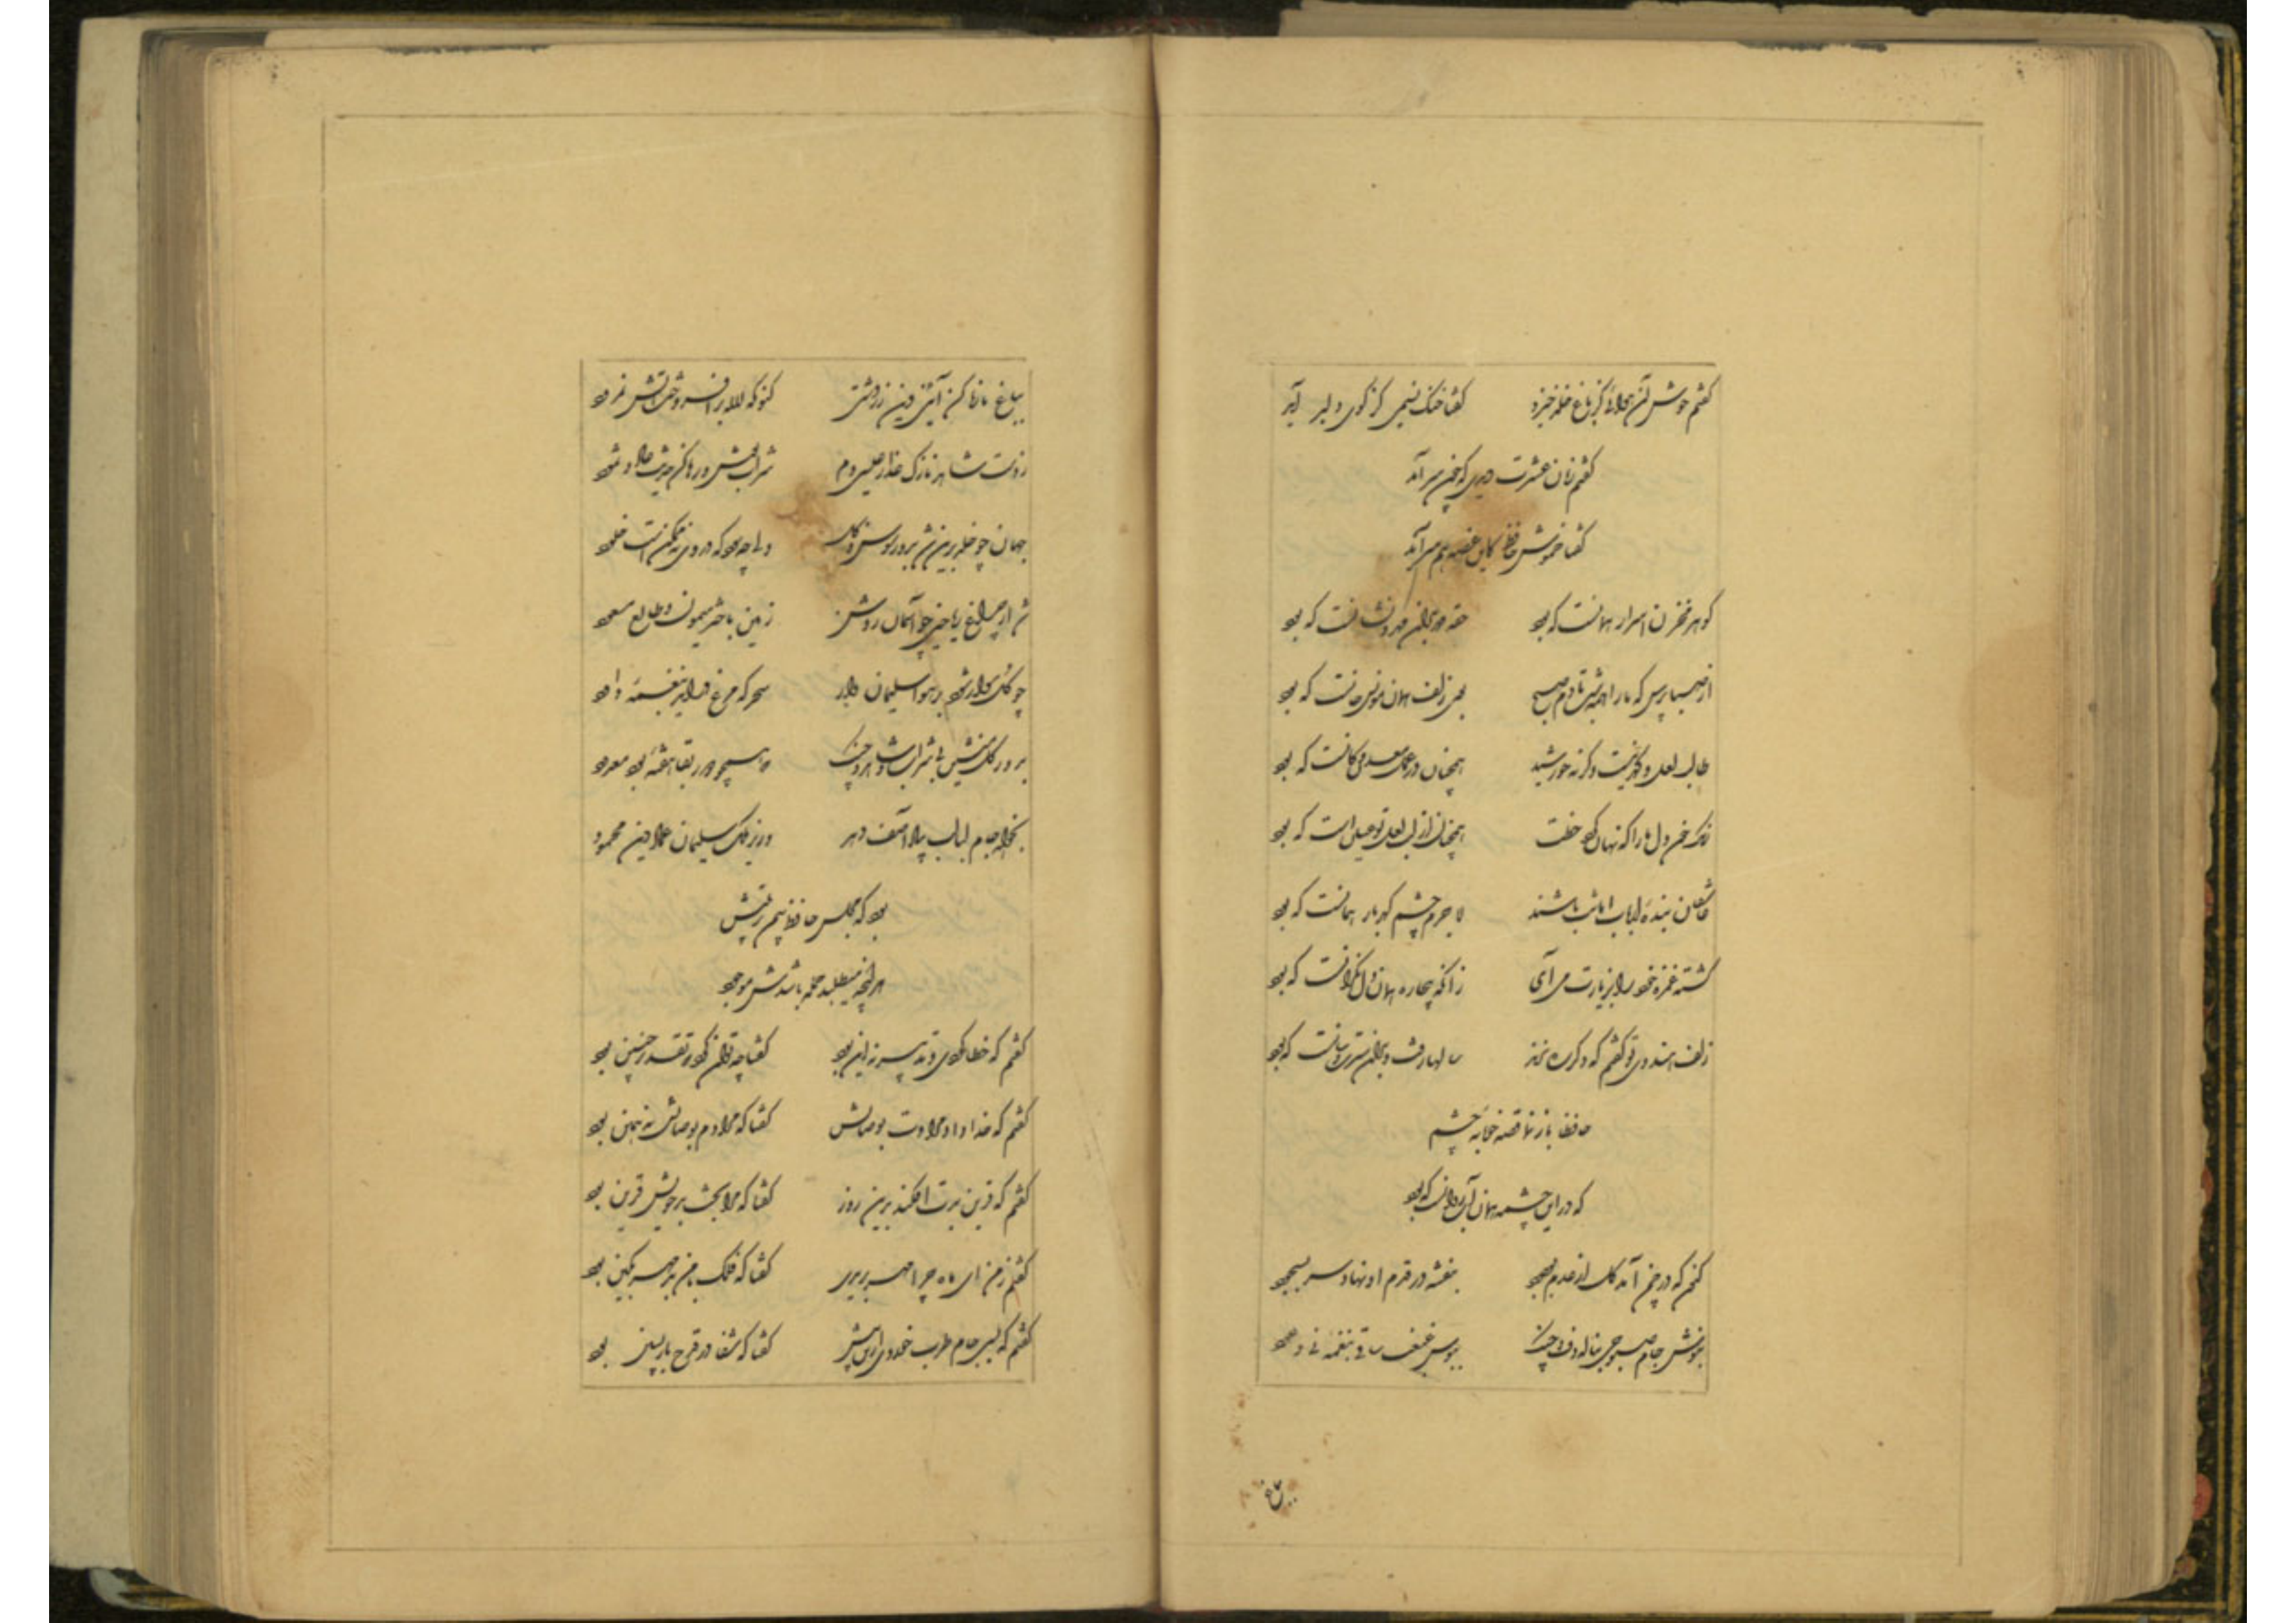 گفتم خوش آن هوائی کز باغ خلد خیزد گفتا خنک نسیمی کز کوی دلبر آید
گفتم زمان عشرت دیدی که چون سر آمد
گفتا خموش حافظ کاین غصه هم سر آید
گوهر مخزن اسرار همانست که بود حقه مهر بدان مهر و نشانست که بود
از صبا پرس که ما را همه شب تا دم صبح بوی زلف تو همان مونس جانست که بود
طالب لعل و گهر نیست وگرنه خورشید همچنان در عمل معدن و کانست که بود
رنگ خون دل ما را که نهان کرد خطت همچنان از لب لعل تو عیان است که بود
عاشقان بنده ارباب امانت باشند لاجرم چشم گهربار همانست که بود
کشته غمزه خود را بزیارت می آی زانکه بیچاره همان دل نگرانست که بود
زلف هندوی تو گفتم که دگر ره نزند سالها رفت و بدان سیرت و سانست که بود
حافظا باز نما قصه خونابه چشم
که در این چشمه همان آب روانست که بود
کنون که در چمن آمد گل از عدم بوجود بنفشه در قدم او نهاد سر بسجود
بنوش جام صبوحی بناله دف و چنگ ببوس غبغب ساقی بنغمه نی و عود
بباغ تازه کن آئین دین زردشتی کنون که لاله برافروخت آتش نمرود
ز دست شاهد نازک عذار عیسی دم شراب نوش و رها کن حدیث عاد و ثمود
جهان چو خلد برین شد بدور سوسن و گل ولی چه سود که در وی نه ممکن است خلود
شد از فروغ ریاحین چو آسمان روشن زمین باختر میمون و طالع مسعود
چو گل سوار شود بر هوا سلیمان وار سحر که مرغ درآید بنغمه داود
بدور گل منشین بی شراب و شاهد و چنگ که همچو دور بقا هفته بود معدود
بخواه جام لبالب بیاد آصف دهر وزیر ملک سلیمان عماد دین محمود
بود که مجلس حافظ بیمن تربیتش
هر آنچه میطلبد جمله باشدش موجود
گفتم که خطا کردی و تدبیر نه این بود گفتا چه توان کرد که تقدیر چنین بود
گفتم که خدا داد مرادت بوصالش گفتا که مرادم بوصالش نه همین بود
گفتم که قرین بدت افکند بدین روز گفتا که مرا بخت بد خویش قرین بود
گفتم ز من ای ماه چرا مهر بریدی گفتا که فلک با من بد مهر بکین بود
گفتم که بسی جام طرب خوردی ازین پیش گفتا که شفا در قدح بازپسین بود